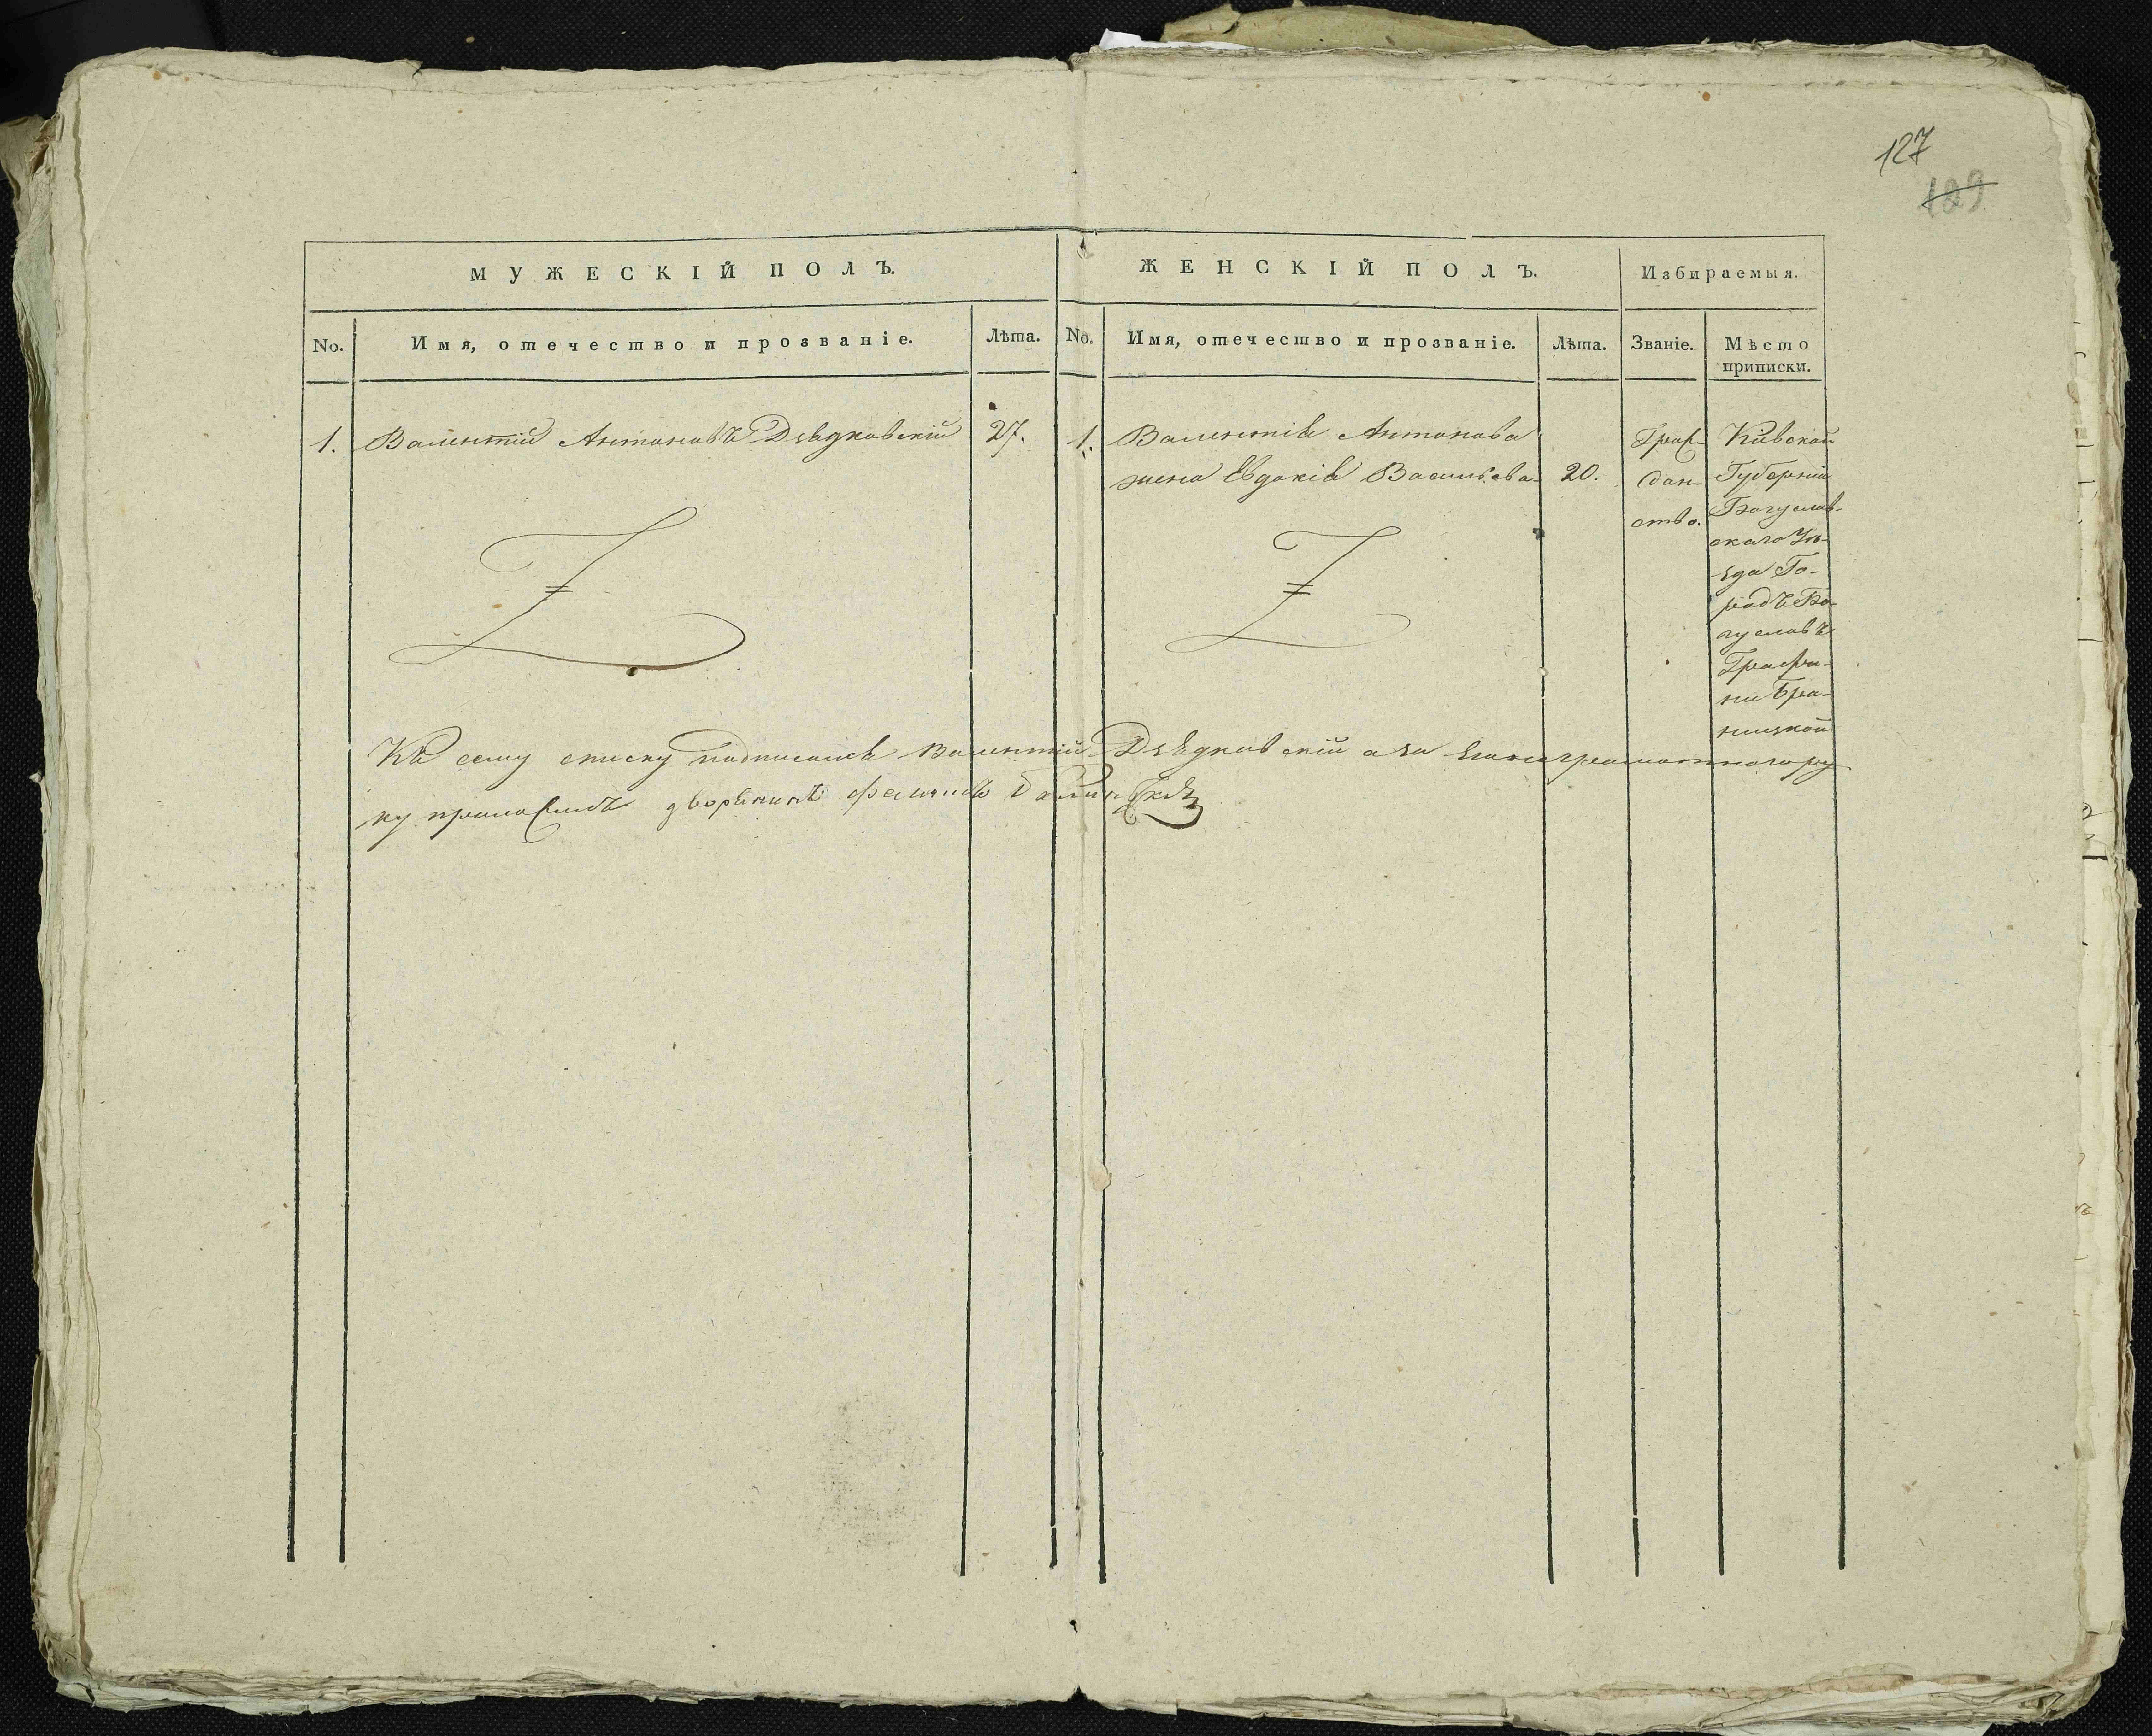 127
129
МУЖЕСКІЙ ПОЛЪ.
ЖЕНСКІЙ ПОЛЪ.
Избираемыя.
No.
Имя, отечество и прозваніе.
Лѣта.
No.
Имя, отечество и прозваніе.
Лѣта.
Званіе.
Мѣсто
приписки.
1. Валентій Антоновъ Дзѣдковскій 27.
1. Валентія Антонова
жена Евдокія Васильева 20.
Граж-
дан-
ство.
Кіивской
Губерніи
Богуслав-
скаго Уѣ-
зда Го-
родъ Бо-
гуславъ
Графи-
ни Бра-
ницкой
Къ сему списку подписался Валентій Дзѣдковскій а за неграмотного ру
ку приложилъ дворянинъ